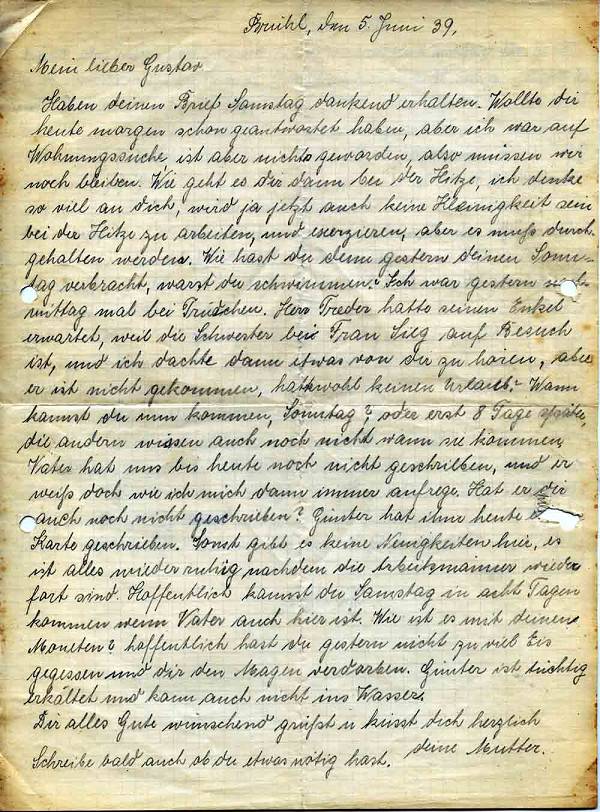 Bruihl, den 5. Juni 39.
Mein lieber Gustav
Haben deinen Brief Samstag dankend erhalten. Wollte dir
heute morgen schon geantwortet haben, aber ich war auf
Wohnungssuche ist aber nichts geworden, also müssen wir
noch bleiben. Wie geht es dir denn bei der Hitze, ich denke
so viel an dich, wird ja jetzt auch keine Kleinigkeit sein
bei der Hitze zu arbeiten, und exerzieren, aber es muß durch-
gehalten werden. Wie hast du denn gestern deinen Sonn-
tag verbracht, warst du schwimmen? Ich war gestern nach-
mittag mal bei Trudchen. Herr Treder hatte seinen Enkel
erwartet, weil die Schwester bei Frau Sieg auf Besuch
ist, und ich dachte dann etwas von dir zu hören, aber
er ist nicht gekommen, hat wohl keinen Urlaub. Wann
kannst du nun kommen, Sonntag? oder erst 8 Tage später,
die andern wissen auch noch nicht wann sie kommen.
Vater hat uns bis heute noch nicht geschrieben, und er
weiß doch wie ich mich dann immer aufrege. Hat er dir
auch noch nicht geschrieben? Günter hat ihm heute
Karte geschrieben. Sonst gibt es keine Neuigkeiten hier, es
ist alles wieder ruhig nachdem die Arbeitsmänner wieder
fort sind. Hoffentlich kannst du Samstag in acht Tagen
kommen wenn Vater auch hier ist. Wie ist es mit deinen
Moneten? hoffentlich hast du gestern nicht zu viel Eis
gegessen und dir den Magen verdorben. Günter ist tüchtig
erkältet und kann auch nicht ins Wasser.
Dir alles Gute wünschend grüßt u küsst dich herzlich
deine Mutter.
Schreibe bald auch ob du etwas nötig hast.